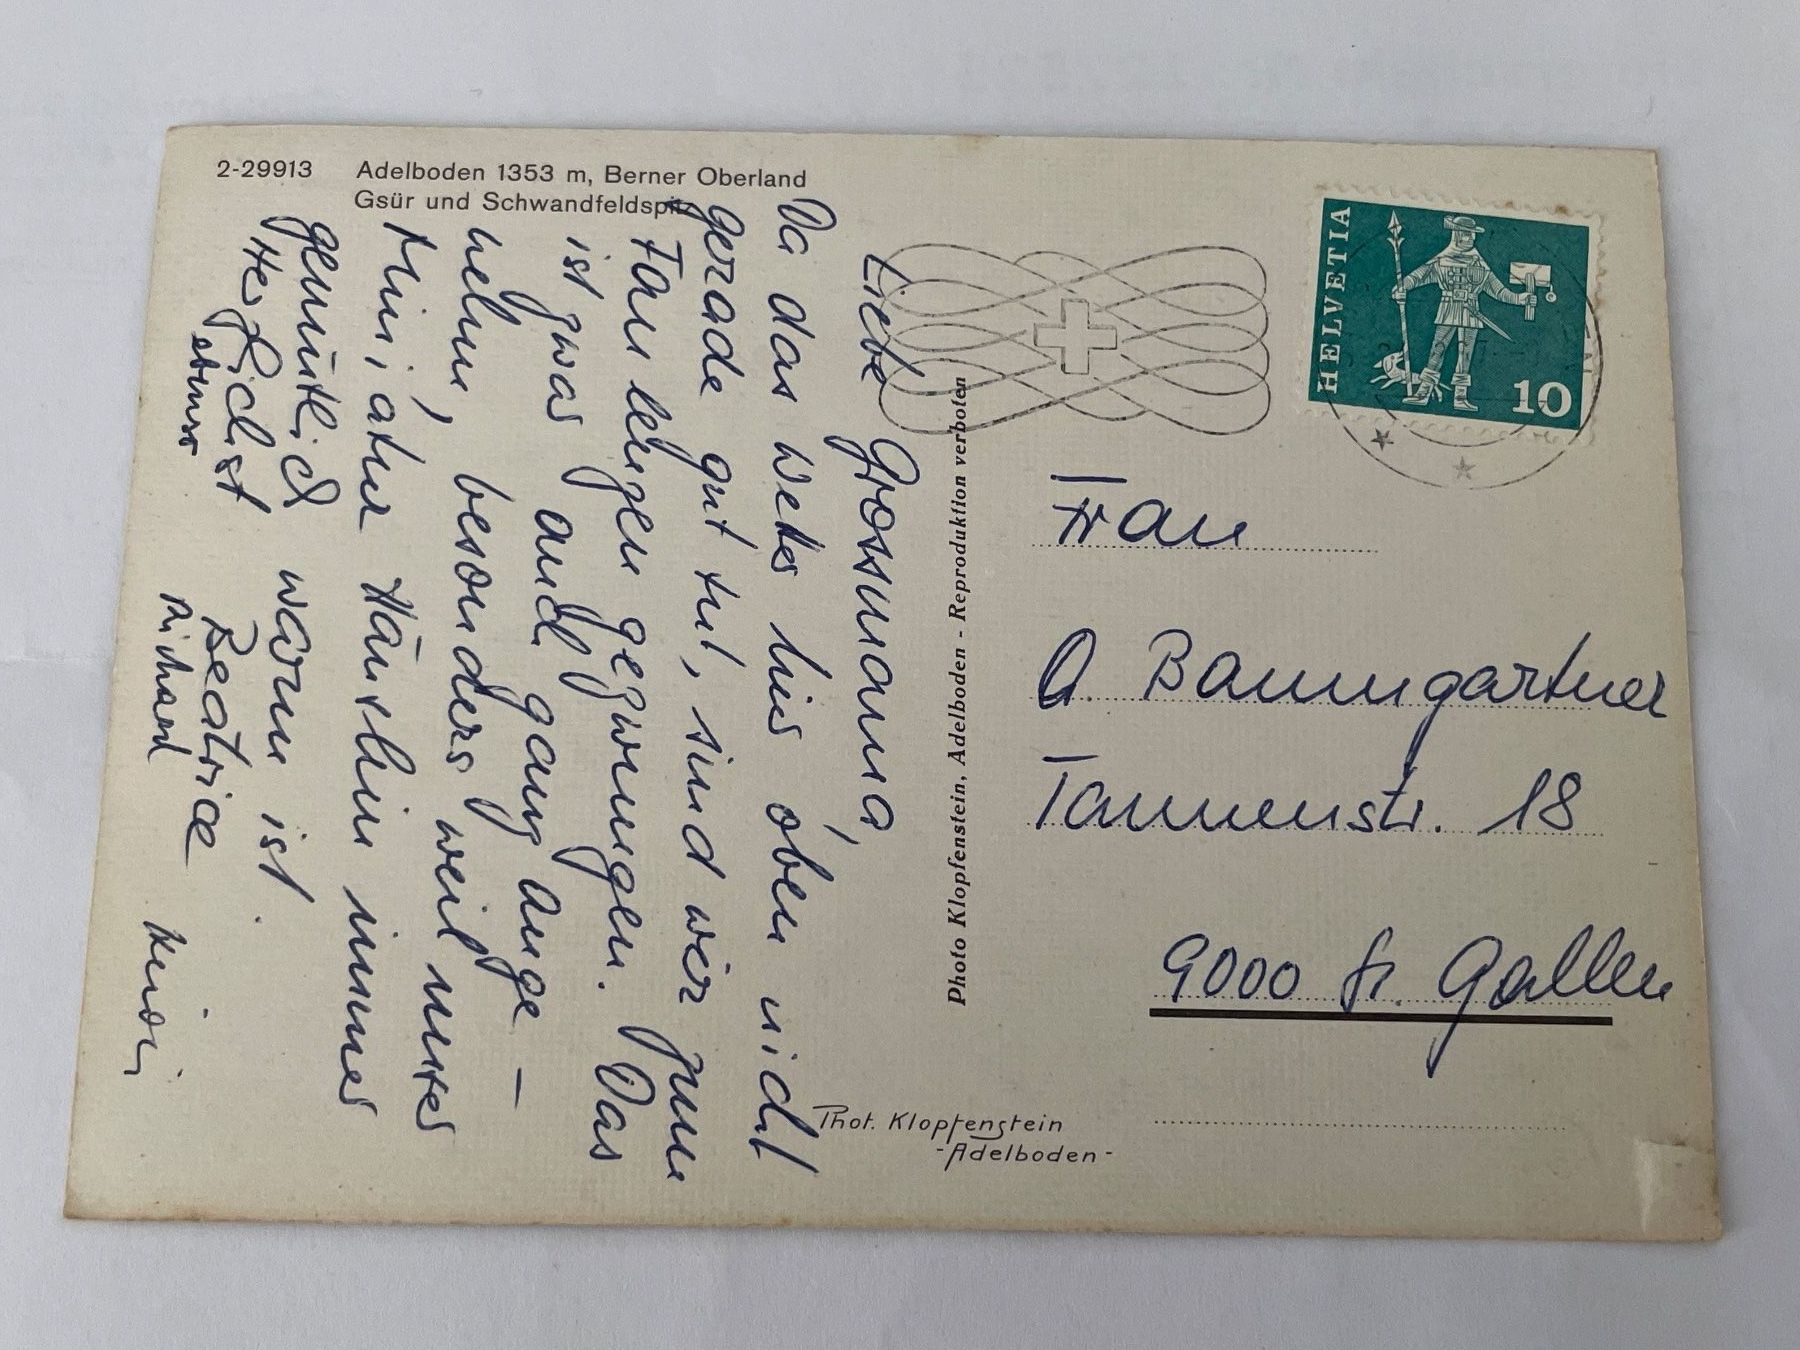 2-29913 Adelboden 1353 m, Berner Oberland
Gsür und Schwandfeldspitz
Liebe Grossmama,
Da das Wetter hier oben nicht
gerade gut tut, sind wir zum
Faulenzen gezwungen. Das
ist zwar auch ganz ange-
nehm, besonders weil unser
Miniatur Häuslein immer
gemütlich warm ist.
Herzlichst Beatrice
Richard
Photo Klopfenstein, Adelboden - Reproduktion verboten
HELVETIA
10
Frau
A. Baumgartner
Tannenstr. 18
9000 St. Gallen
Phot. Klopfenstein
-Adelboden-